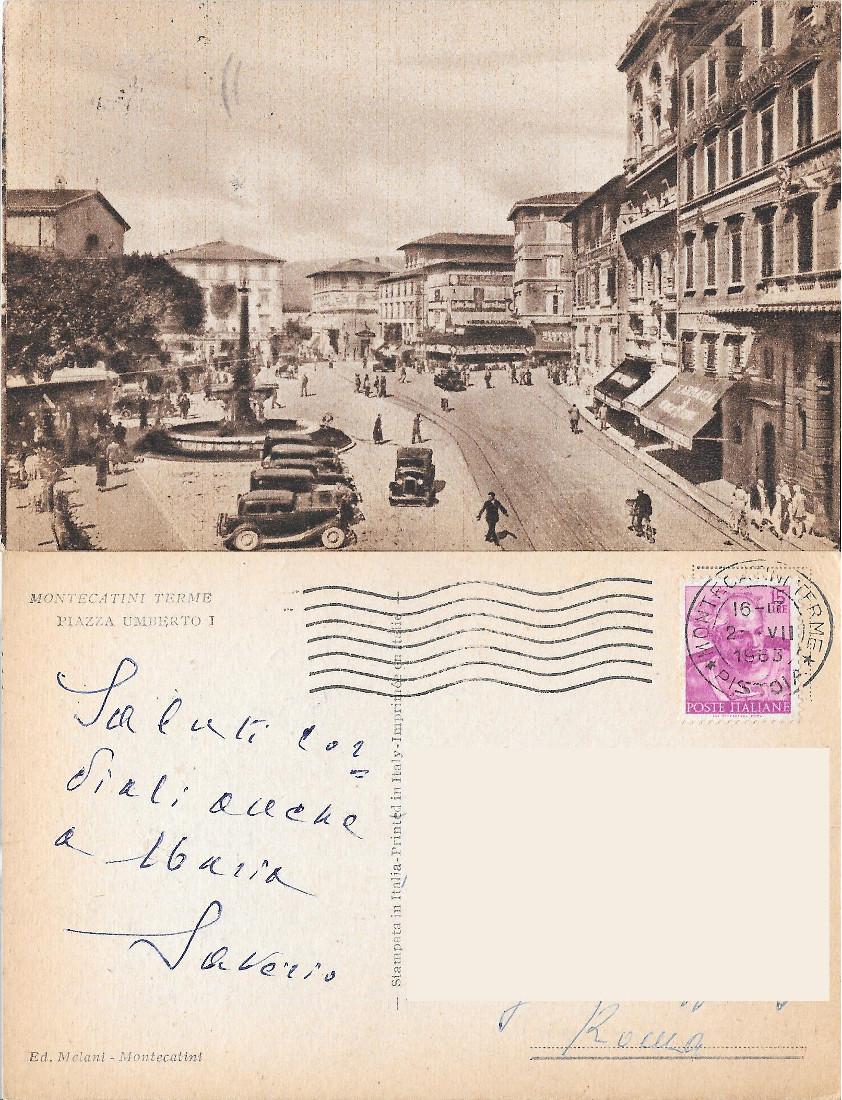 FARMACIA
MONTECATINI TERME
PIAZZA UMBERTO I
MONTECATINI TERME
16-
2- VII
1963
PISTOIA
15
LIRE
POSTE ITALIANE
Saluti cor=
diali anche
a Maria
Saverio
Stampata in Italia-Printed in Italy-Imprimée en Italie
Roma
Ed. Melani - Montecatini